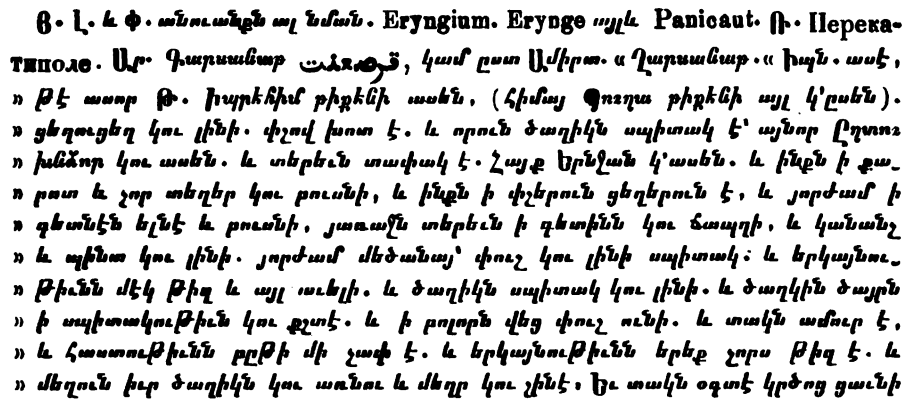 Յ. Լ. և Փ. անուանքն ալ նման. Eryngium. Erynge այլև Panicaut. Ռ. Перека-
типоле. Ար. Գարսանաբ قرصعنت, կամ ըստ Ամիրտ. « Ղարսանաբ.« Իպն. ասէ,
» Թէ ասոր Թ. իպրէհիմ թիքէնի ասեն, (Հիմայ Պուղա թիքէնի այլ կ'ըսեն).
» ցեղուցեղ կու լինի. փշով խոտ է. և որուն ծաղիկն սպիտակ է՝ այնոր Ընտու
» խնձոր կու ասեն. և տերեւն տափակ է. Հայք Երնջան կ'ասեն. և ինքն ի քա-
» րոտ և չոր տեղեր կու բուսնի, և ինքն ի փշերուն ցեղերուն է, և յորժամ ի
» գետնէն ելնէ և բուսնի, յառաջն տերեւն ի գետինն կու ճապղի, և կանանչ
» և պինտ կու լինի. յորժամ մեծանայ՝ փուշ կու լինի սպիտակ: և երկայնու-
» Թիւնն մէկ Թիզ և այլ աւելի. և ծաղիկն սպիտակ կու լինի. և ծաղկին ծայրն
» ի սպիտակութիւն կու քշտէ. և ի բոլորն վեց փուշ ունի. և տակն ամուր է,
» և հաստութիւնն բըթի մի չափ է. և երկայնութիւնն երեք չորս Թիզ է. և
» մեղուն իւր ծաղիկն կու առնու և մեղր կու շինէ. Եւ տակն օգտէ կրծոց ցաւնի